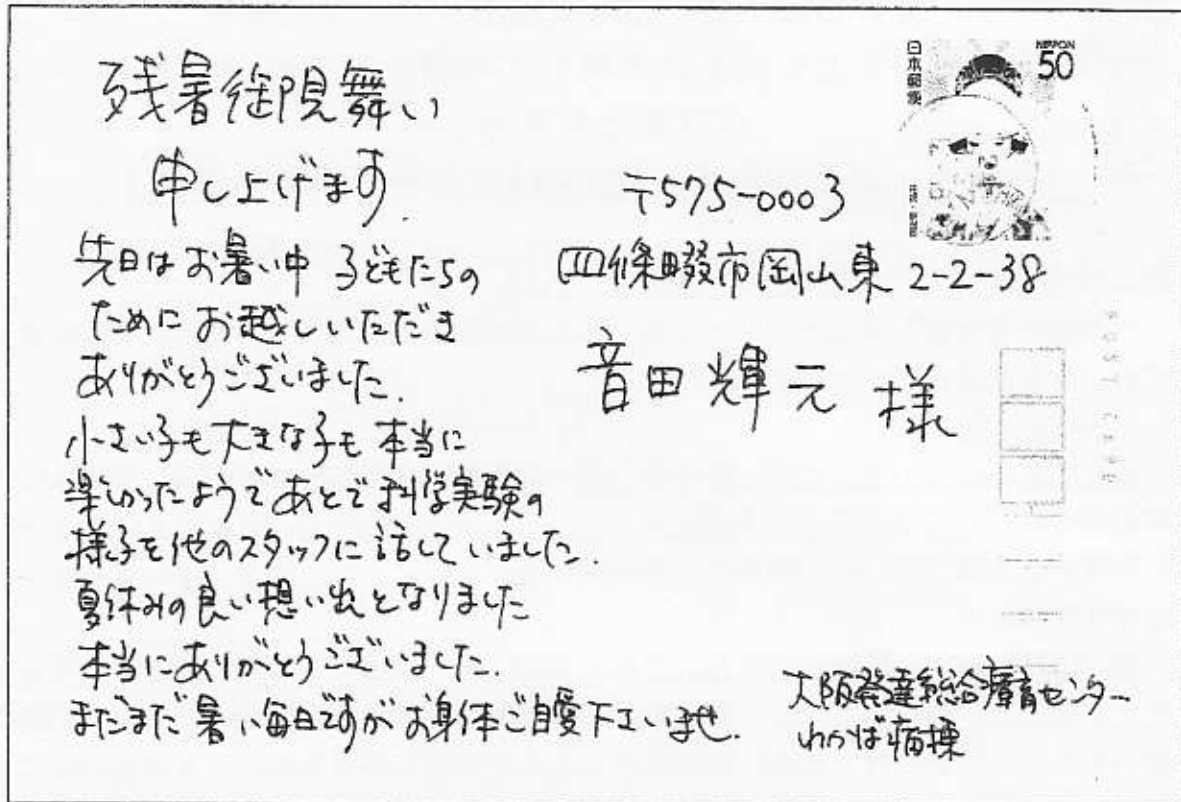 残暑御見舞い
申し上げます
先日はお暑い中 子どもたちの
ためにお越しいただき
ありがとうございました.
小さい子も大きな子も 本当に
楽しかったようであとで科学実験の
様子を他のスタッフに話していました.
夏休みの良い想い出となりました
本当にありがとうございました.
まだまだ暑い毎日ですがお身体ご自愛下さいませ.
日本郵便
NIPPON
50
〒575-0003
四條畷市岡山東 2-2-38
音田輝元 様
POST CARD
大阪発達総合療育センター
わかば病棟